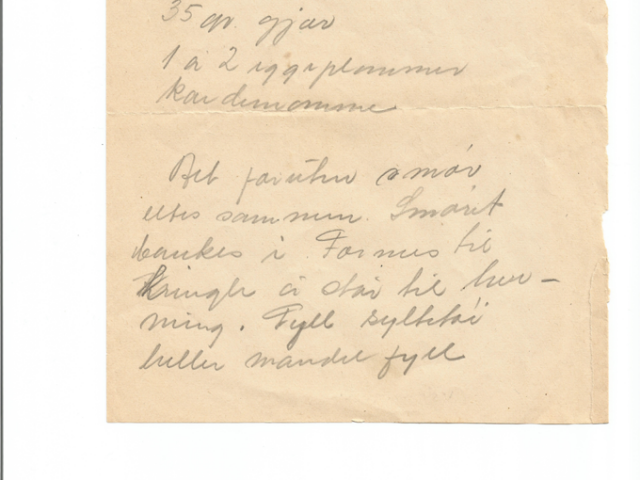 35 gr. gjær
1 a 2 eggeplommer
kardemomme
Alt foruten smør
eltes sammen. Smøret
bankes i Formes til
Kringle å står til hev-
ning. Fyll syltetøi
heller mandel fyll